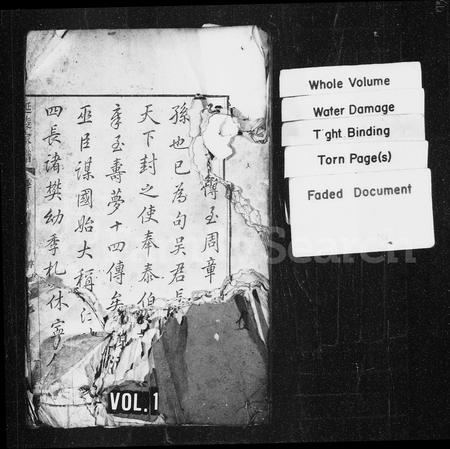 至周章
孫也已為句吳君
天下封之使奉泰伯
章至壽夢十四傳矣
巫臣謀國始大稱
四長諸樊幼季札休寧
VOL. 1
Whole Volume
Water Damage
Tight Binding
Torn Page(s)
Faded Document